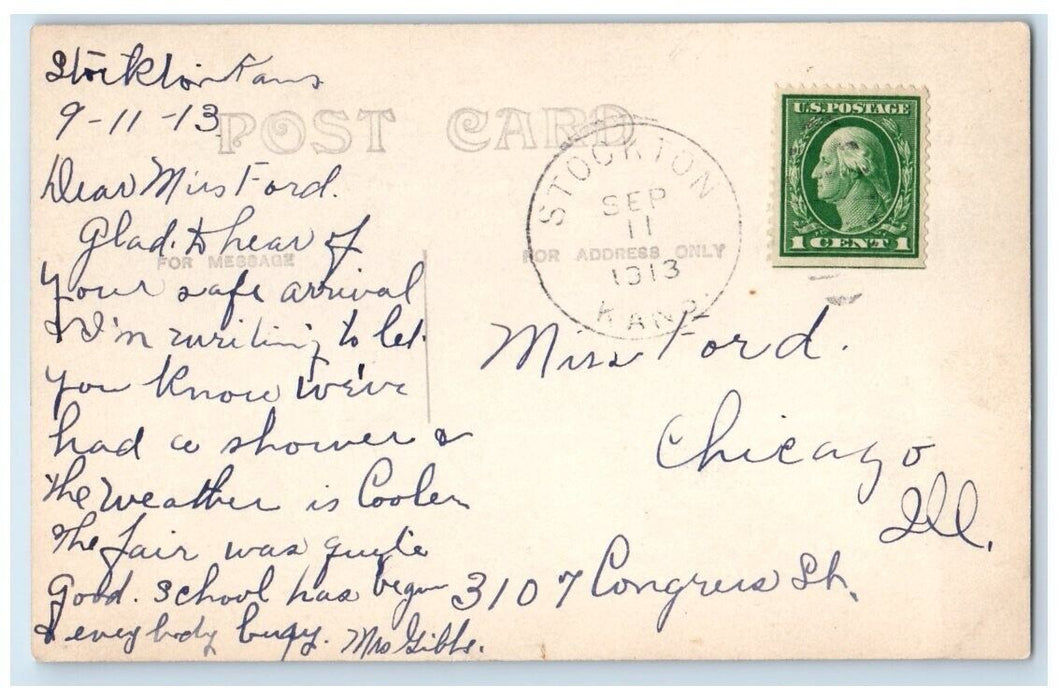 Stockton Kans
9-11-13
POST CARD
Dear Miss Ford.
Glad. to hear of
FOR MESSAGE
your safe arrival
& I'm writing to let
you know we've
had a shower &
the weather is Cooler
The fair was quite
Good. School has begun
& everybody busy. Mrs Gibbs.
U.S. POSTAGE
1 CENT 1
STOCKTON
SEP
11
1913
KANS.
FOR ADDRESS ONLY
Miss Ford.
Chicago
Ill.
3107 Congress St.